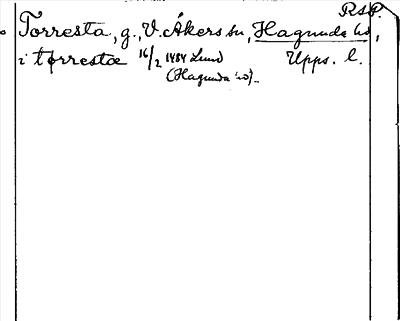 RSP.
Torresta, g., V. Åkers sn, Hagunda hd,
i tørrestæ 16/2 1484 Lund Upps. l.
(Hagunda hd).